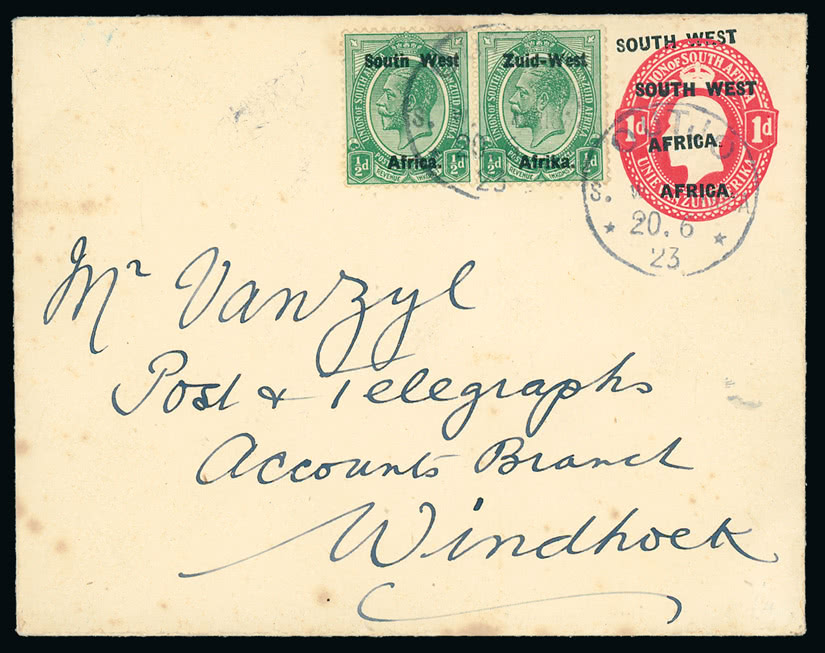 South West
Africa.
½d ½d
Zuid-West
Afrika.
½d ½d
SOUTH WEST
UNION OF SOUTH AFRICA
SOUTH WEST
1d 1d
AFRICA.
AFRICA.
UNIE VAN ZUID AFRIKA
OUTJO
S. W.
20. 6
23
Mr Van Zyl
Post & Telegraphs
Accounts Branch
Windhoek